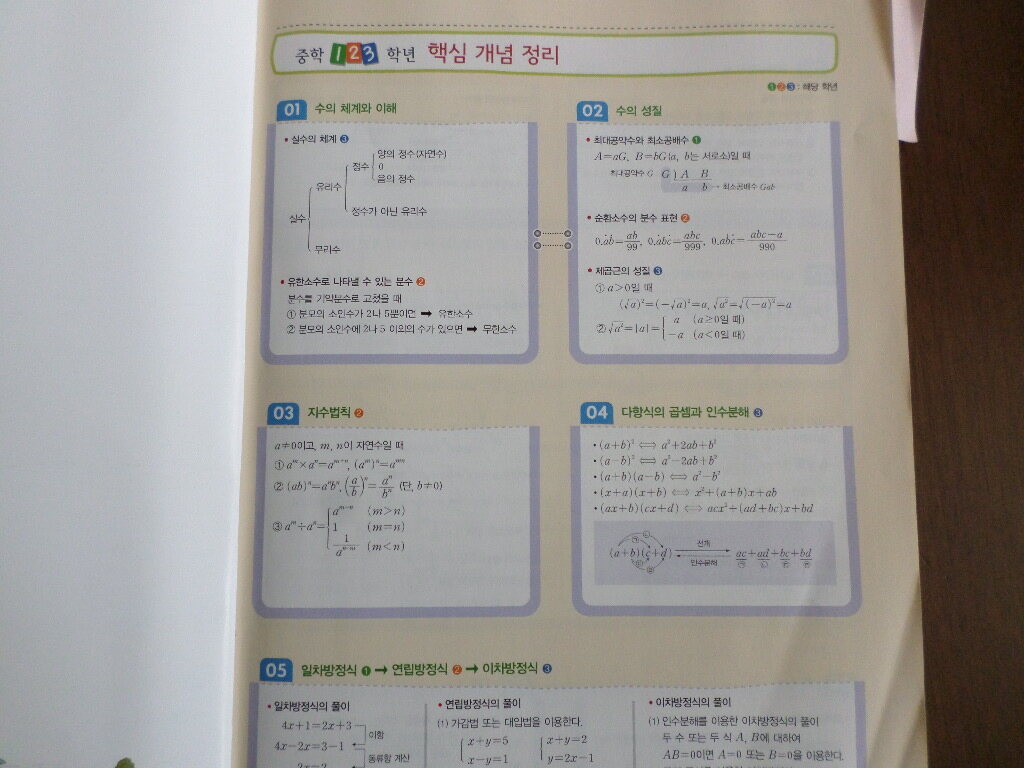 중학 1 2 3 학년 핵심 개념 정리
1 2 3 : 해당 학년
01 수의 체계와 이해
• 실수의 체계 3
실수
유리수
정수
양의 정수(자연수)
0
음의 정수
정수가 아닌 유리수
무리수
• 유한소수로 나타낼 수 있는 분수 2
분수를 기약분수로 고쳤을 때
① 분모의 소인수가 2나 5뿐이면 ➡ 유한소수
② 분모의 소인수에 2나 5 이외의 수가 있으면 ➡ 무한소수
02 수의 성질
• 최대공약수와 최소공배수 1
A=aG, B=bG(a, b는 서로소)일 때
최대공약수 G G ) A B
a b → 최소공배수 Gab
• 순환소수의 분수 표현 2
0.ȧḃ=ab/99, 0.ȧbċ=abc/999, 0.aḃċ=abc−a/990
• 제곱근의 성질 3
① a>0일 때
(√a)²=(−√a)²=a, √a²=√(−a)²=a
② √a²=|a|={ a (a≥0일 때)
−a (a<0일 때)
03 지수법칙 2
a≠0이고, m, n이 자연수일 때
① aᵐ×aⁿ=aᵐ⁺ⁿ, (aᵐ)ⁿ=aᵐⁿ
② (ab)ⁿ=aⁿbⁿ, (a/b)ⁿ=aⁿ/bⁿ (단, b≠0)
③ aᵐ÷aⁿ={ aᵐ⁻ⁿ (m>n)
1 (m=n)
1/aⁿ⁻ᵐ (m<n)
04 다항식의 곱셈과 인수분해 3
• (a+b)² ⟺ a²+2ab+b²
• (a−b)² ⟺ a²−2ab+b²
• (a+b)(a−b) ⟺ a²−b²
• (x+a)(x+b) ⟺ x²+(a+b)x+ab
• (ax+b)(cx+d) ⟺ acx²+(ad+bc)x+bd
전개
(a+b)(c+d) ac+ad+bc+bd
인수분해
05 일차방정식 1 ➡ 연립방정식 2 ➡ 이차방정식 3
• 일차방정식의 풀이
4x+1=2x+3
이항
4x−2x=3−1
동류항 계산
2x=2
• 연립방정식의 풀이
(1) 가감법 또는 대입법을 이용한다.
{ x+y=5 { x+y=2
x−y=1 y=2x−1
• 이차방정식의 풀이
(1) 인수분해를 이용한 이차방정식의 풀이
두 수 또는 두 식 A, B에 대하여
AB=0이면 A=0 또는 B=0을 이용한다.